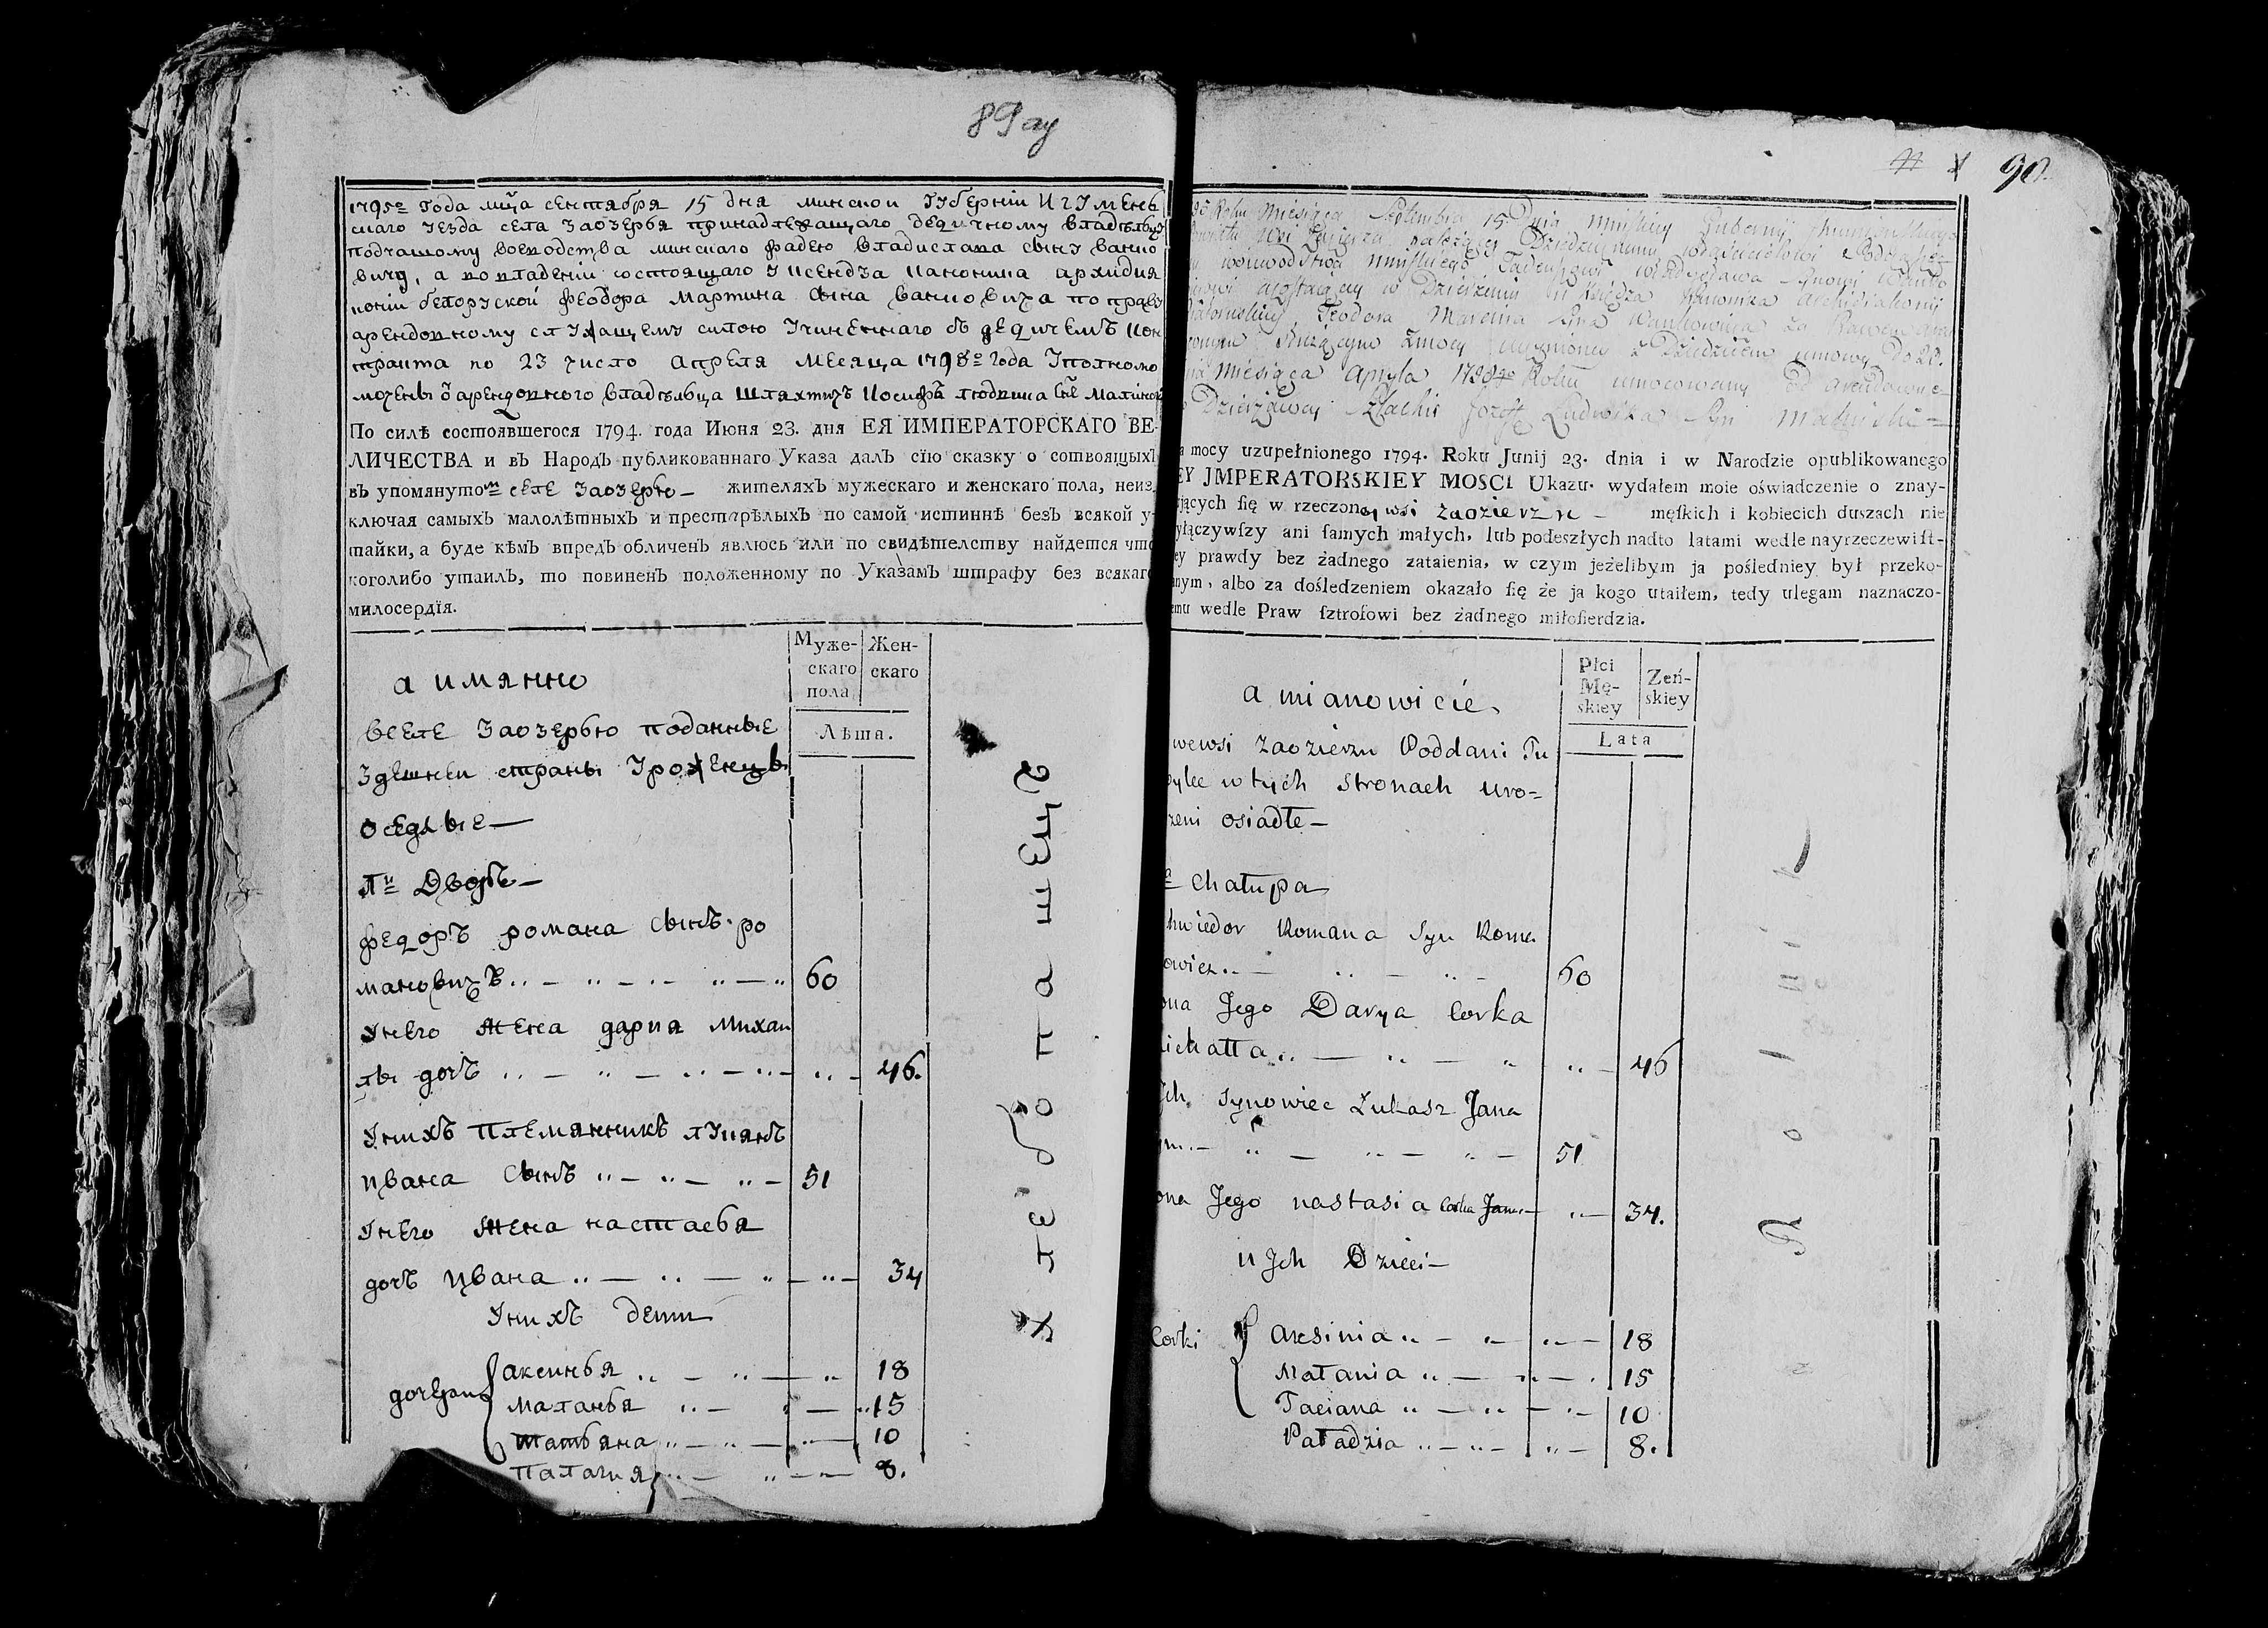 89 ау
1795го Года мц̃а сентября 15 дня минской Губерніи Игумень
скаго уезда села Заозерья принадлежащаго дедичному владѣльцу
подчашому воеводства минскаго фадею владислава сыну ванко
вичу, а во владеніи состоящаго у ксендза каноника архидия
коніи белоруской феодора мартина сына ваньковича по праву
арендовному служащему силою учиненнаго съ дедичемъ кон
тракта по 23 число апреля месяца 1798го года уполномо
моченъ ѿ арендовного владѣльца шляхтичъ иосифъ людвика
По силѣ состоявшегося 1794. года Июня 23. дня ЕЯ ИМПЕРАТОРСКАГО ВЕ-
ЛИЧЕСТВА и въ Народъ публикованнаго Указа далъ сїю сказку о сотвоящыхъ
въ упомянутомъ селе Заозерью — жителяхъ мужескаго и женскаго пола, неиз-
ключая самыхъ малолѣтныхъ и престарѣлыхъ по самой истиннѣ безъ всякой у-
тайки, а буде кѣмъ впредъ обличенъ явлюсь или по свидѣтелству найдется что
коголибо утаилъ, то повиненъ положенному по Указамъ штрафу без всякаго
милосердїя.
Муже-
скаго
пола
Жен-
скаго
Лѣта.
а имянно
вселе Заозерью поданные
здешнеи страны уроженцы
оседлые —
Дворъ —
федоръ романа сынъ ро
мановичъ 60
унего жена дария михаи
лы дочъ 46.
унихъ племянникъ лукянъ
ивана сынъ 51
унего жена настасья
дочъ ивана 34
унихъ дети
дочери
аксинья 18
маланья 15
татьяна 10
палагия 8.
хлебопашецъ
90
Roku Miesiąca Septembra 15 Dnia Minskiey Gubernij
należącey Dziedzicznemu
woiewodstwa Minskiego Tadeuszowi Władysława Synowi
w Dzierżeniu u Xiędza Kanonika Archidiakonij
Teodora Marcina Syna Wankowicza za Prawem
Służącym z mocy z Dziedzicem umowy Do 23.
Miesiąca Apryla 1798go Roku umocowany od arendowne
Dzierżawcy Szlachic Jozeff Ludwika Syn
a mocy uzupełnionego 1794. Roku Junij 23. dnia i w Narodzie opublikowanego
EY JMPERATORSKIEY MOSCI Ukazu. wydałem moie oświadczenie o znay-
ujących ſię w rzeczoney wsi Zaozierzu — męſkich i kobiecich duszach nie
yłączywſzy ani ſamych małych, lub podeszłych nadto latami wedle nayrzeczewiſt-
ey prawdy bez żadnego zataienia, w czym jeżelibym ja pośledniey był przeko-
anym, albo za dośledzeniem okazało ſię że ja kogo utaiłem, tedy ulegam naznaczo-
emu wedle Praw ſztrofowi bez żadnego miłoſierdzia.
Płci
Mę-
skiey
Zeń-
skiey
Lata
a mianowicie
wewsi Zaozierzu Poddani Tu
bylce w tych stronach uro=
zeni osiadłe —
chałupa
hwiedor Romana Syn Roma
owicz 60
ona Jego Darya Corka
ichałła 46
Jch Synowiec Łukasz Jana
yn 51
ona Jego nastasia Corka Jana 34.
u Jch Dzieci —
Corki
Axsinia 18
Małania 15
Taciana 10
Paładzia 8.
Rolnik